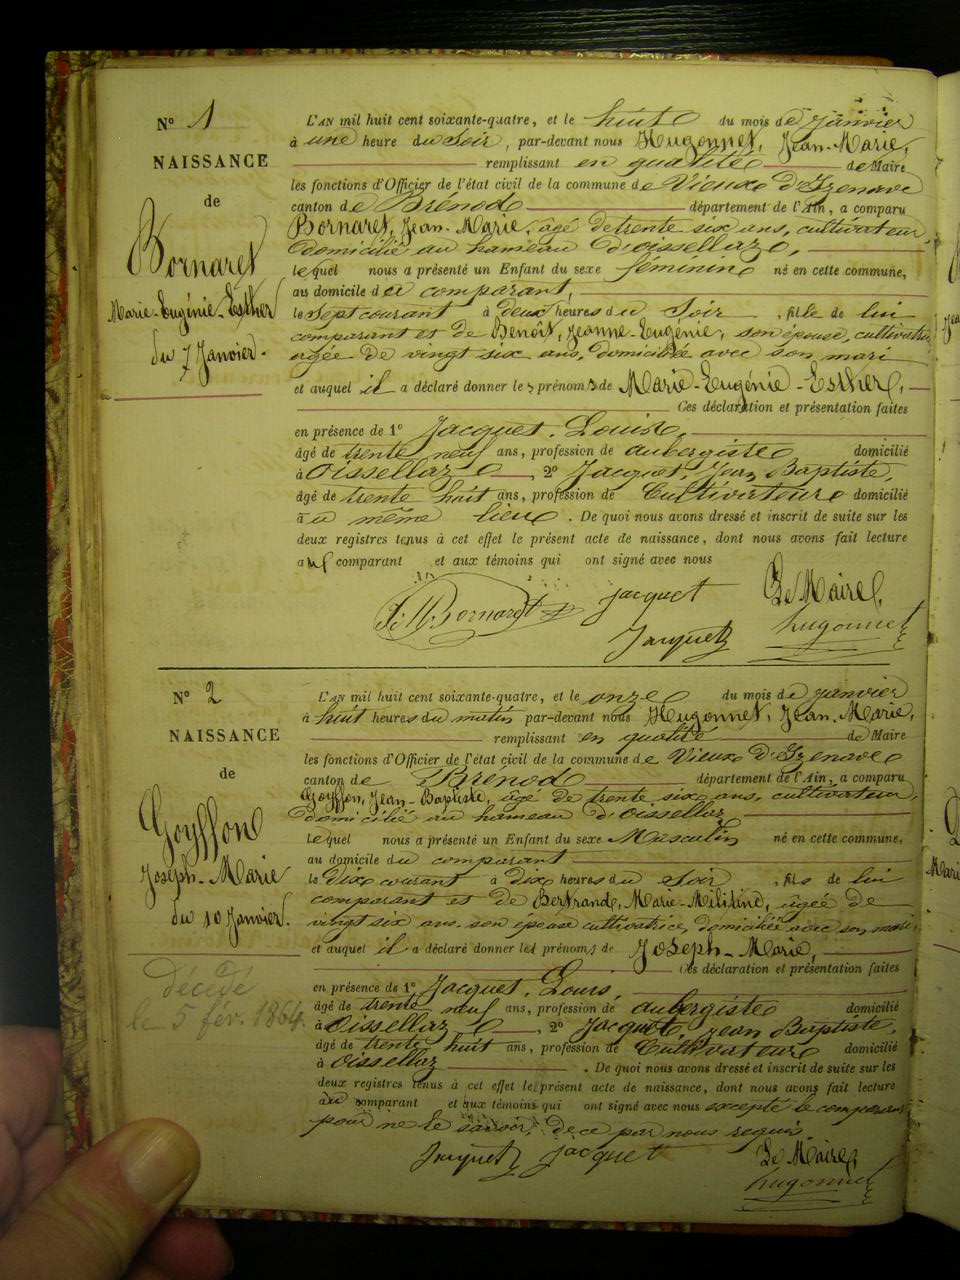 N° 1
NAISSANCE
de
Bornaret
Marie-Eugénie-Esther
du 7 Janvier.
L'AN mil huit cent soixante-quatre, et le huit du mois de janvier
à une heure du soir, par-devant nous Hugonnet, Jean-Marie,
remplissant en qualité de Maire
les fonctions d'Officier de l'état civil de la commune de Vieux d'Izenave
canton de Brénod département de l'Ain, a comparu
Bornaret, Jean-Marie, âgé de trente six ans, cultivateur,
domicilié au hameau d'oissellaz,
lequel nous a présenté un Enfant du sexe féminin né en cette commune,
au domicile du comparant,
le sept courant à deux heures du soir, fille de lui
comparant et de Benoît, Jeanne-Eugénie, son épouse, cultivatrice,
agée de vingt six ans, domiciliée avec son mari
et auquel il a déclaré donner les prénoms de Marie-Eugénie-Esther,
Ces déclaration et présentation faites
en présence de 1° Jacquet, Louis,
âgé de trente neuf ans, profession de aubergiste domicilié
à Oissellaz, 2° Jacquet, Jean Baptiste,
âgé de trente huit ans, profession de Cultivateur domicilié
au même lieu. De quoi nous avons dressé et inscrit de suite sur les
deux registres tenus à cet effet le présent acte de naissance, dont nous avons fait lecture
au comparant et aux témoins qui ont signé avec nous
J. M. Bornaret Jacquet Le Maire,
Jacquet hugonnet
N° 2
NAISSANCE
de
Goyffon
Joseph-Marie
du 10 Janvier.
décédé
le 5 fév. 1864.
L'AN mil huit cent soixante-quatre, et le onze du mois de janvier
à huit heures du matin par-devant nous Hugonnet, Jean-Marie,
remplissant en qualité de Maire
les fonctions d'Officier de l'état civil de la commune de Vieux d'Izenave
canton de Brénod département de l'Ain, a comparu
Goyffon, Jean-Baptiste, âgé de trente six ans, cultivateur,
domicilié au hameau d'oissellaz
lequel nous a présenté un Enfant du sexe Masculin né en cette commune,
au domicile du comparant
le dix courant à dix heures du soir, fils de lui
comparant et de Bertrand, Marie-Militine, agée de
vingt six ans, son épouse cultivatrice, domiciliée avec son mari,
et auquel il a déclaré donner les prénoms de Joseph-Marie,
Ces déclaration et présentation faites
en présence de 1° Jacquet, Louis,
âgé de trente neuf ans, profession de aubergiste domicilié
à Oissellaz, 2° Jacquet, Jean Baptiste,
âgé de trente huit ans, profession de Cultivateur domicilié
à Oissellaz. De quoi nous avons dressé et inscrit de suite sur les
deux registres tenus à cet effet le présent acte de naissance, dont nous avons fait lecture
au comparant et aux témoins qui ont signé avec nous excepté le comparant
pour ne le savoir, de ce par nous requis.
Jacquet Jacquet Le Maire,
hugonnet